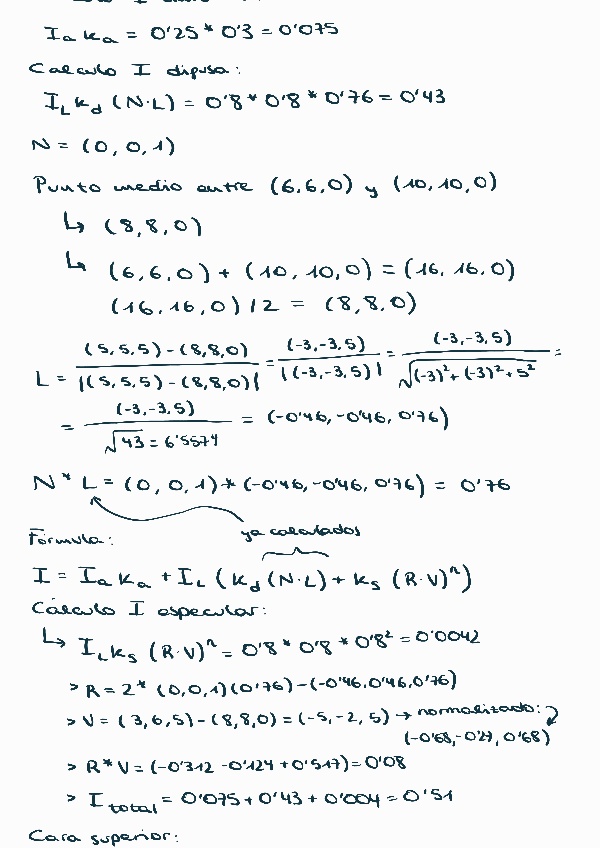 Iₐkₐ = 0'25 * 0'3 = 0'075
Calculo I difusa:
I_L k_d (N·L) = 0'8 * 0'8 * 0'76 = 0'43
N = (0, 0, 1)
Punto medio entre (6,6,0) y (10,10,0)
↳ (8,8,0)
↳ (6,6,0) + (10,10,0) = (16,16,0)
(16,16,0)/2 = (8,8,0)
L = (5,5,5)-(8,8,0) / |(5,5,5)-(8,8,0)| = (-3,-3,5) / |(-3,-3,5)| = (-3,-3,5) / √(-3)²+(-3)²+5² =
= (-3,-3,5) / √43 = 6'5574 = (-0'46, -0'46, 0'76)
N * L = (0, 0, 1) * (-0'46, -0'46, 0'76) = 0'76
ya calculados
Fórmula:
I = Iₐkₐ + I_L (k_d (N·L) + k_s (R·V)ⁿ)
Cálculo I especular:
↳ I_L k_s (R·V)ⁿ = 0'8 * 0'8 * 0'8² = 0'0042
> R = 2* (0,0,1)(0'76) - (-0'46,0'46,0'76)
> V = (3,6,5) - (8,8,0) = (-5,-2,5) → normalizado:
(-0'68,-0'27,0'68)
> R*V = (-0'312 -0'124 +0'517) = 0'08
> I_total = 0'075 + 0'43 + 0'004 = 0'51
Cara superior: